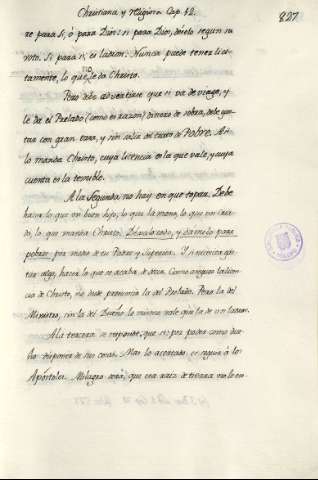 Christiana, y religiosa Cap. 42. 827
re para Si, ó para Dios: si para Dios, désele segun su
voto. Si para si, es ladron: Nunca puede tener lici-
tamente, lo que le da Christo.
Pero debe advertirse que si va de viage, y
le dé el Prelado (como es razon) dinero de sobra, debe gas-
tar con gran tino, y sin salir del texto de Pobre. Asi
lo manda Christo, cuya licencia es la que vale, y cuya
cuenta es la temible.
A la Segunda, no hay en que topar. Debe
hacer lo que un buen hijo, lo que la mano, lo que un cria-
do, lo que manda Christo. Déxalo todo, y dámelo para
pobres: por mano de tu Padre y Superior. Y si necesita gas-
tar algo, hacer lo que se acaba de decir. Como ninguna licen-
cia de Christo, no puede presumirla del Prelado. Pero la del
Ministro, sin la del Dueño lo mismo vale que la de un ladron.
A la tercera se responde, que si: pues puede como due-
ño disponer de sus cosas. Mas lo acertado, es seguir á los
Apóstoles. Milagro será, que esa raiz de tierra no le en-